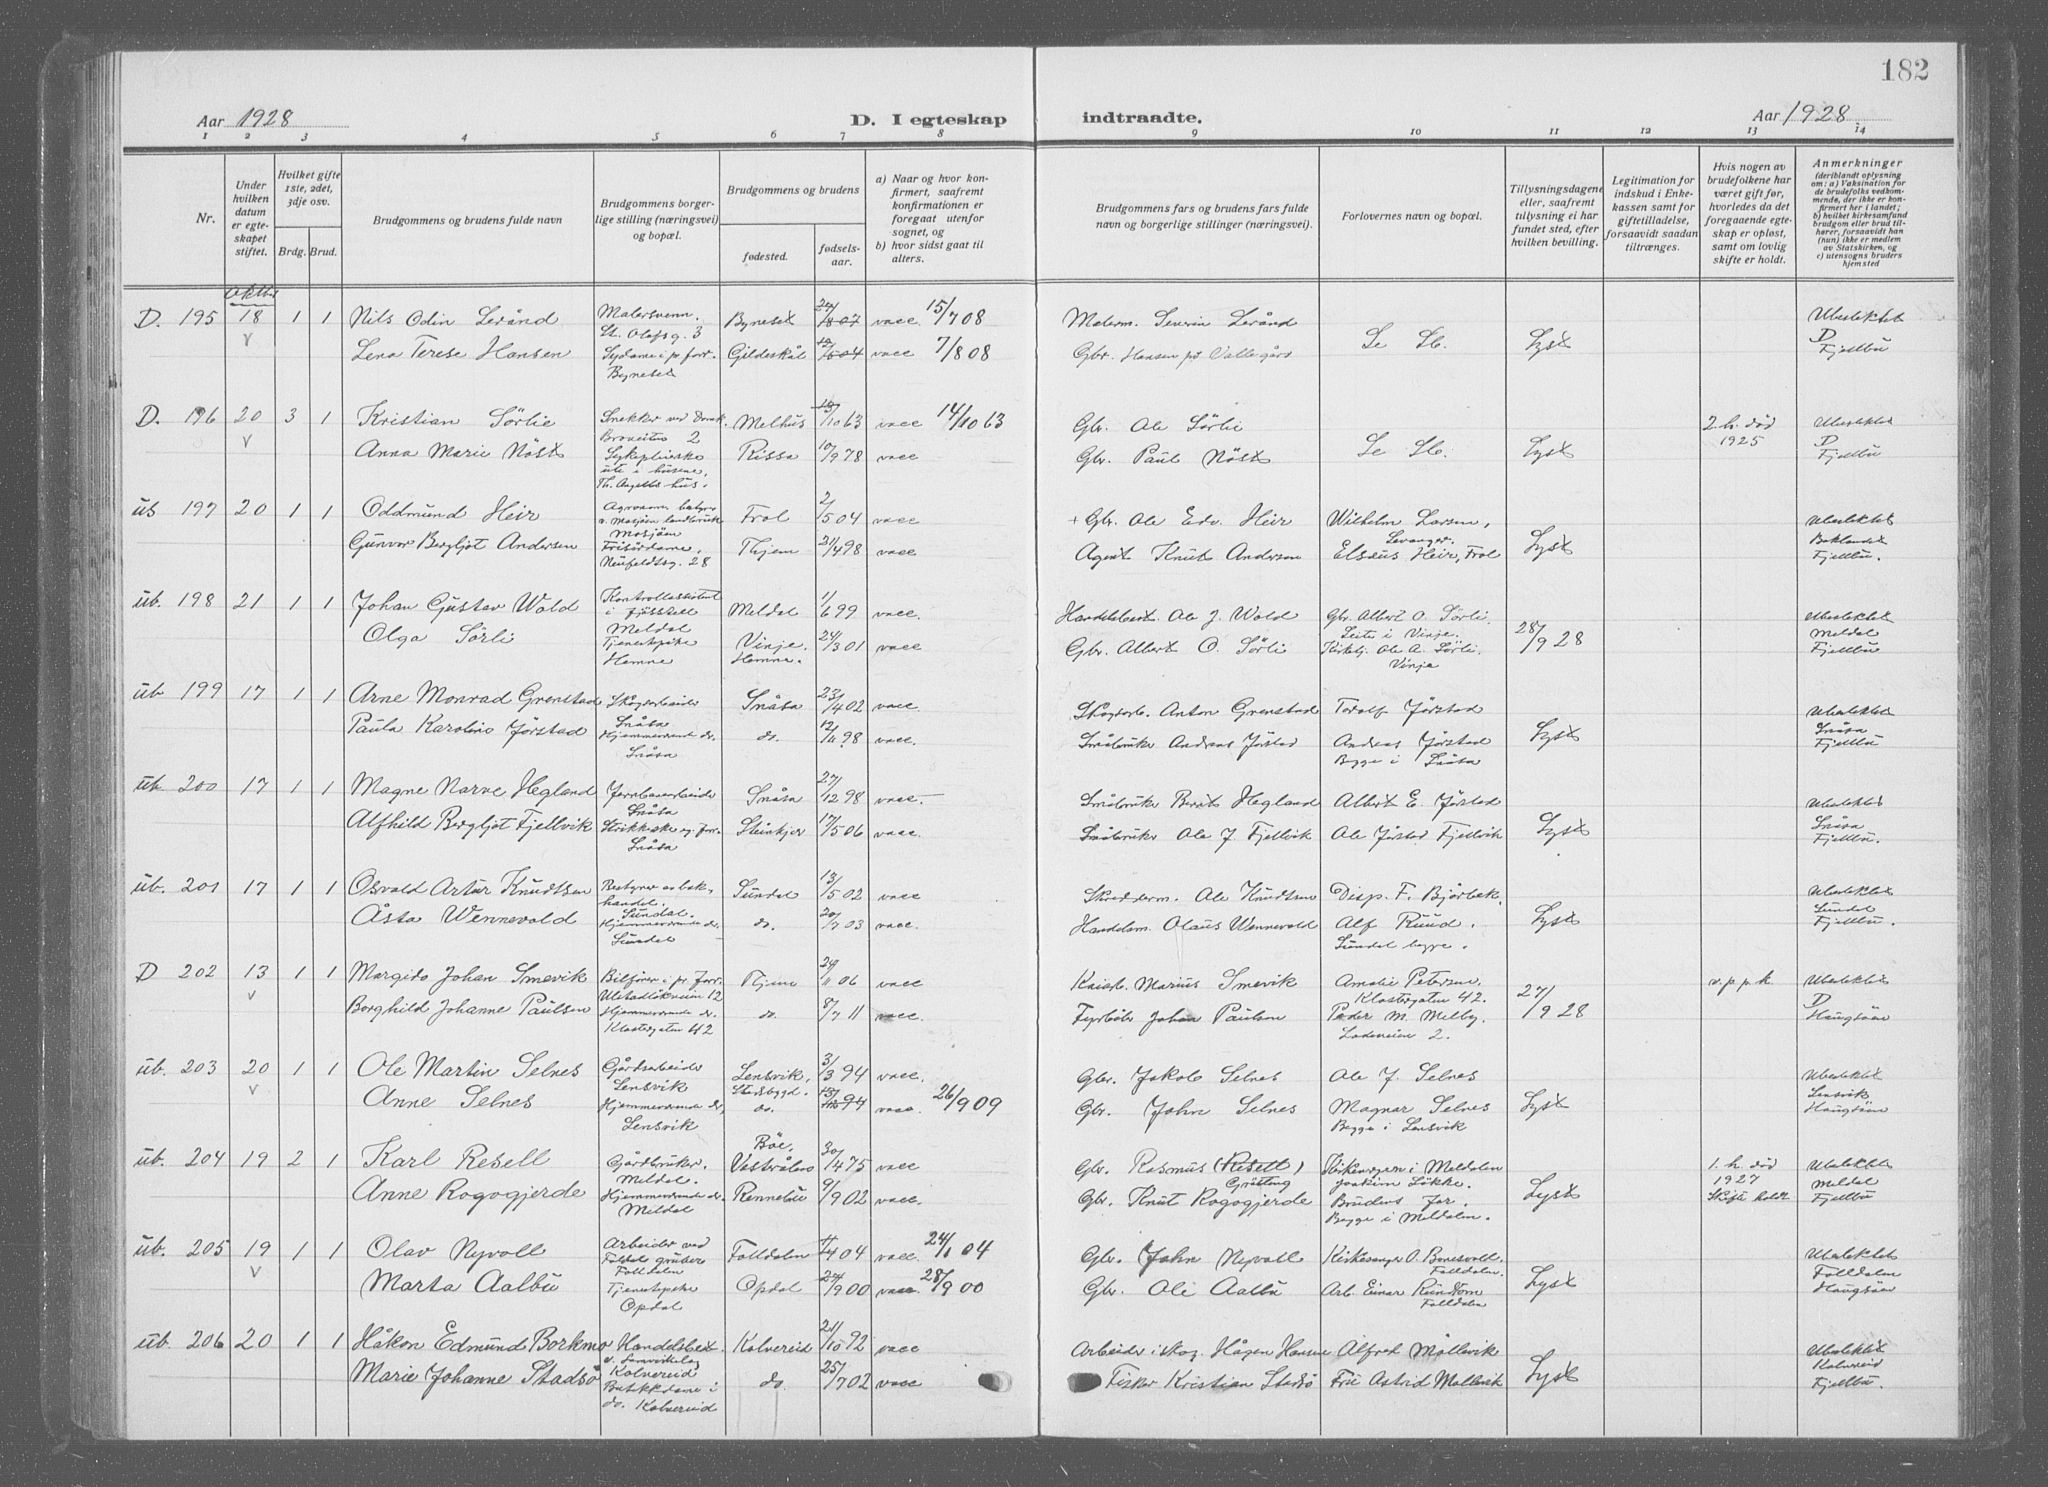 182
Aar 1928
D. I egteskap indtraadte.
Aar 1928
1 2 3 4 5 6 7 8 9 10 11 12 13 14
Nr.
Under hvilken datum er egteskapet stiftet.
Hvilket gifte 1ste, 2det, 3dje osv.
Brdg. Brud.
Brudgommens og brudens fulde navn
Brudgommens borgerlige stilling (næringsvei) og bopæl.
Brudgommens og brudens
fødested. fødselsaar.
a) Naar og hvor konfirmert, saafremt konfirmationen er foregaat utenfor sognet, og
b) hvor sidst gaat til alters.
Brudgommens fars og brudens fars fulde navn og borgerlige stillinger (næringsvei).
Forlovernes navn og bopæl.
Tillysningsdagene eller, saafremt tillysning ei har fundet sted, efter hvilken bevilling.
Legitimation for indskud i Enkekassen samt for giftetilladelse, forsaavidt saadan tiltrænges.
Hvis nogen av brudefolkene har været gift før, hvorledes da det foregaaende egteskap er opløst, samt om lovlig skifte er holdt.
Anmerkninger (deriblandt oplysning om: a) Vaksination for de brudefolks vedkommende, der ikke er konfirmert her i landet; b) hvilket kirkesamfund brudgom eller brud tilhører, forsaavidt han (hun) ikke er medlem av Statskirken, og c) utensogns bruders hjemsted
D. 195 18 1 1 Nils Odin Lerånd Malersvenn. St. Olafsg. 3 Byneset vacc 15/7 08 Malerm. Severin Lerånd Lyst Ubeslektet
Lena Terese Hansen Byneset Gildeskål vacc 7/8 08 Gbr. Hansen D Fjellbu
D. 196 20 3 1 Kristian Sörlie Snekker Melhus 10 63 vacc 14/10 63 Gbr. Ole Sörli 2. h. död 1925 Ubeslektet
Anna Marie Nöst Rissa 10/9 78 vacc Gbr. Paul Nöst Lyst D Fjellbu
ub 197 20 1 1 Oddmund Heir Mosjöen Frol 2/5 04 vacc + Gbr. Ole Edv. Heir Wilhelm Larsen, Levanger. Ubeslektet
Gunvor Bergljot Andersen Frisördame, Neufeldtsg. 28 Thjem 21/4 98 vacc Agent Knut Andersen Elseus Heir, Frol Lyst Baklandet Fjellbu.
ub. 198 21 1 1 Johan Gustav Wold Kontrollassistent Meldal Meldal 1/6 99 vacc Handelsbest. Ole J. Wold Gbr. Albert O. Sörli. 28/9 28 Ubeslektet
Olga Sörli Tjenestepike Hemne Vinje. Hemne. 24/3 01 vacc Gbr. Albert O. Sörli Kirketj. Ole A. Sörli. Vinje Meldal Fjellbu
ub 199 17 1 1 Arne Monrad Grenstad Skogsarbeider Snåsa Snåsa 23/4 02 vacc Skogsarb. Anton Grenstad Todolf Jörstad Ubeslektet
Paula Karolino Jörstad Hjemmeværende ds. Snåsa do. 12/11 98 vacc. Småbruker Andreas Jörstad Andreas Jörstad Begge i Snåsa Lyst Snåsa Fjellbu
ub. 200 17 1 1 Magne Narve Hegland Jernbanearbeider Snåsa Snåsa 27/12 98 vacc. Småbruker Bernt Hegland Albert E. Jörstad Ubeslektet
Alfhild Bergljot Fjellvik Snåsa Steinkjer 17/5 06 vacc. Småbruker Ole J. Fjellvik Ole Jörstad Fjellvik Lyst Snåsa Fjellbu.
ub. 201 17 1 1 Osvald Artur Knudtsen Bestyrer av bokhandel. Sundal. Sundal 13/5 02 vacc Skredderm. Ole Knudtsen Disp. F. Bjørbek. Ubeslektet
Åsta Wennevold Hjemmeværende ds. Sundal do. 20/7 03 vacc. Handelsm. Olaus Wennevold Alf Ruud. Sundal begge. Lyst Sundal Fjellbu.
D 202 13 1 1 Margido Johan Smevik Bilförer i p. forr. Ulstadlökveien 12 Thjem 24/11 06 vacc Marius Smevik Amalie Petersen Klostergaten 42. 27/9 28 v. p. p. k. Ubeslektet
Borghild Johanne Paulsen Hjemmeværende ds. Klostergaten 42 do. 8/7 11 vacc. Fyrböter Johan Paulsen Peder M. Melby. Ladeveien 2. D Haugsöen
ub. 203 20 1 1 Ole Martin Selnes Gårdsarbeider Lensvik Lensvik. 3/3 94 vacc. Gbr. Jakob Selnes Ole J. Selnes Ubeslektet
Anne Selnes Hjemmeværende ds. Lensvik Stadsbygd. do. 94 vacc. 26/9 09 Gbr. John Selnes Magnar Selnes Begge i Lensvik Lyst Lensvik Haugsöen
ub. 204 19 2 1 Karl Resell Gårdbruker. Meldal. Böe, Vesterålen 30/4 75 vacc Gbr. Rasmus (Resell) Grötting Kirkesanger i Meldalen Joakim Lökke. 1. h. död 1927 Skifte holdt Ubeslektet
Anne Rogogjerde Hjemmeværende ds. Meldal Rennebu 9/9 02 vacc. Gbr. Knut Rogogjerde Brudens far. Begge i Meldalen. Lyst Meldal Fjellbu
ub. 205 19 1 1 Olav Nyvoll Arbeider ved Foldal gruber Folldalen Folldalen 04 vacc. 24/1 04 Gbr. John Nyvoll Kirkesanger O. Folldalen. Ubeslektet
Marta Aalbu Tjenestepike Opdal Opdal 9 00 vacc. 28/9 00 Gbr. Ole Aalbu Arb. Einar Rundtom Folldalen Lyst Folldalen Haugsöen
ub. 206 20 1 1 Håkon Edmund Borkmo Handelsbest. Kolvereid Kolvereid 21/10 92 vacc Arbeider i skog. Hågen Hansen Alfred Möllevik Ubeslektet
Marie Johanne Stadsö Butikkdame i do. Kolvereid do. 25/7 02 vacc Fisker Kristian Stadsö Fru Astrid Möllevik Lyst Kolvereid Fjellbu.